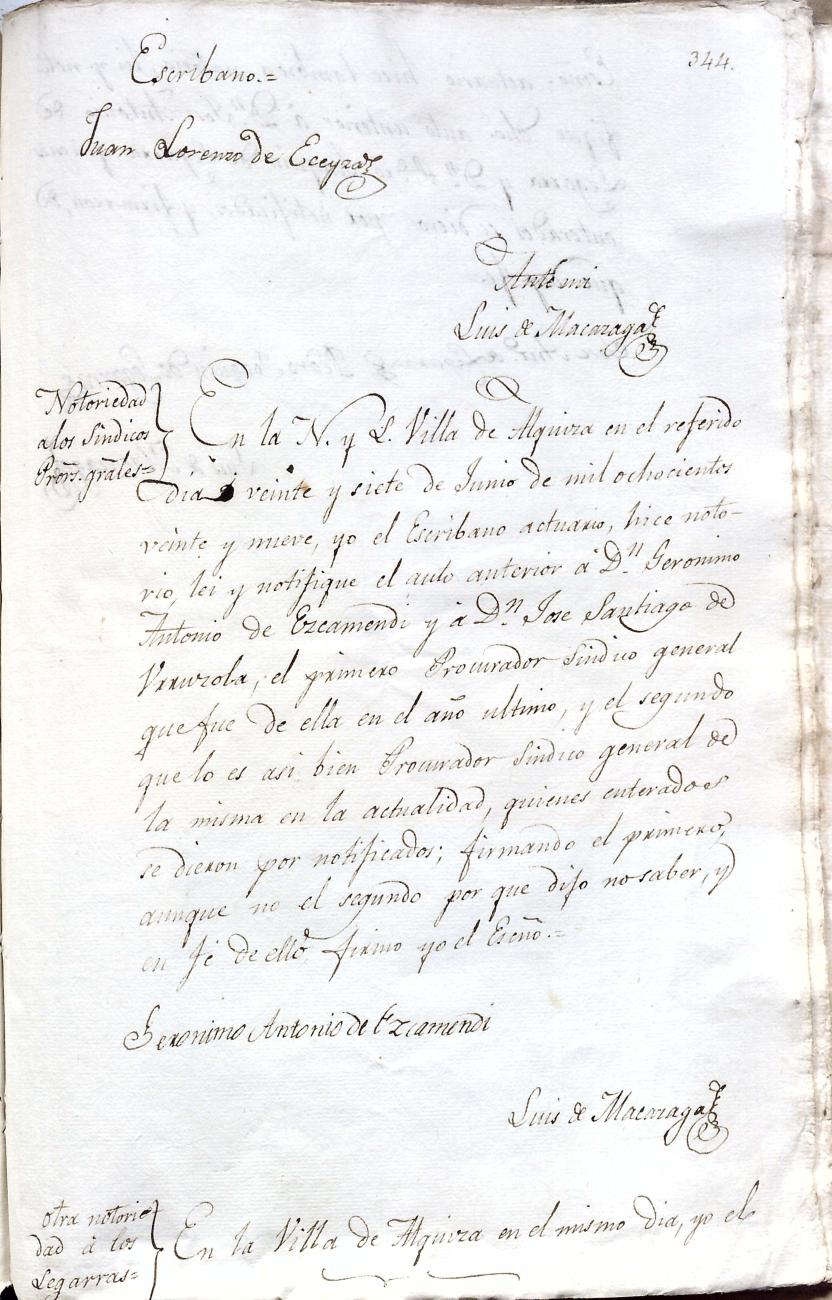 344.
Escribano.=
Juan Lorenzo de Eceyza
Ante mi
Luis de Macazaga
Notoriedad
a los Sindicos
Prors. grales=
En la N. y L. Villa de Alquiza en el referido
dia veinte y siete de Junio de mil ochocientos
veinte y nueve, yo el Escribano actuario, hice noto-
rio, lei y notifique el auto anterior á Dn. Geronimo
Antonio de Ezcamendi y á Dn. Jose Santiago de
Urruzola, el primero Procurador Sindico general
que fue de ella en el año ultimo, y el segundo
que lo es asi bien Procurador Sindico general de
la misma en la actualidad, quienes enterados
se dieron por notificados; firmando el primero,
aunque no el segundo por que dijo no saber, y
en fé de ello firmo yo el Escño.=
Geronimo Antonio de Ezcamendi
Luis de Macazaga
otra notorie
dad á los
Legarras=
En la Villa de Alquiza en el mismo dia, yo el